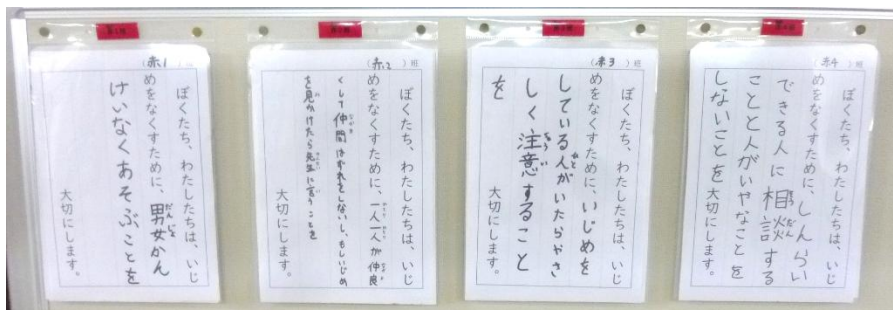 (赤1)班
ぼくたち、わたしたちは、いじ
めをなくすために、男女かん
けいなくあそぶことを
大切にします。
(赤2)班
ぼくたち、わたしたちは、いじ
めをなくすために、一人一人が仲良
くして仲間はずれをしないし、もしいじめ
を見かけたら先生に言うことを
大切にします。
(赤3)班
ぼくたち、わたしたちは、いじ
めをなくすために、いじめを
している人がいたらやさ
しく注意すること
を
大切にします。
(赤4)班
ぼくたち、わたしたちは、いじ
めをなくすために、しんらい
できる人に相談する
ことと人がいやなことを
しないことを大切にします。